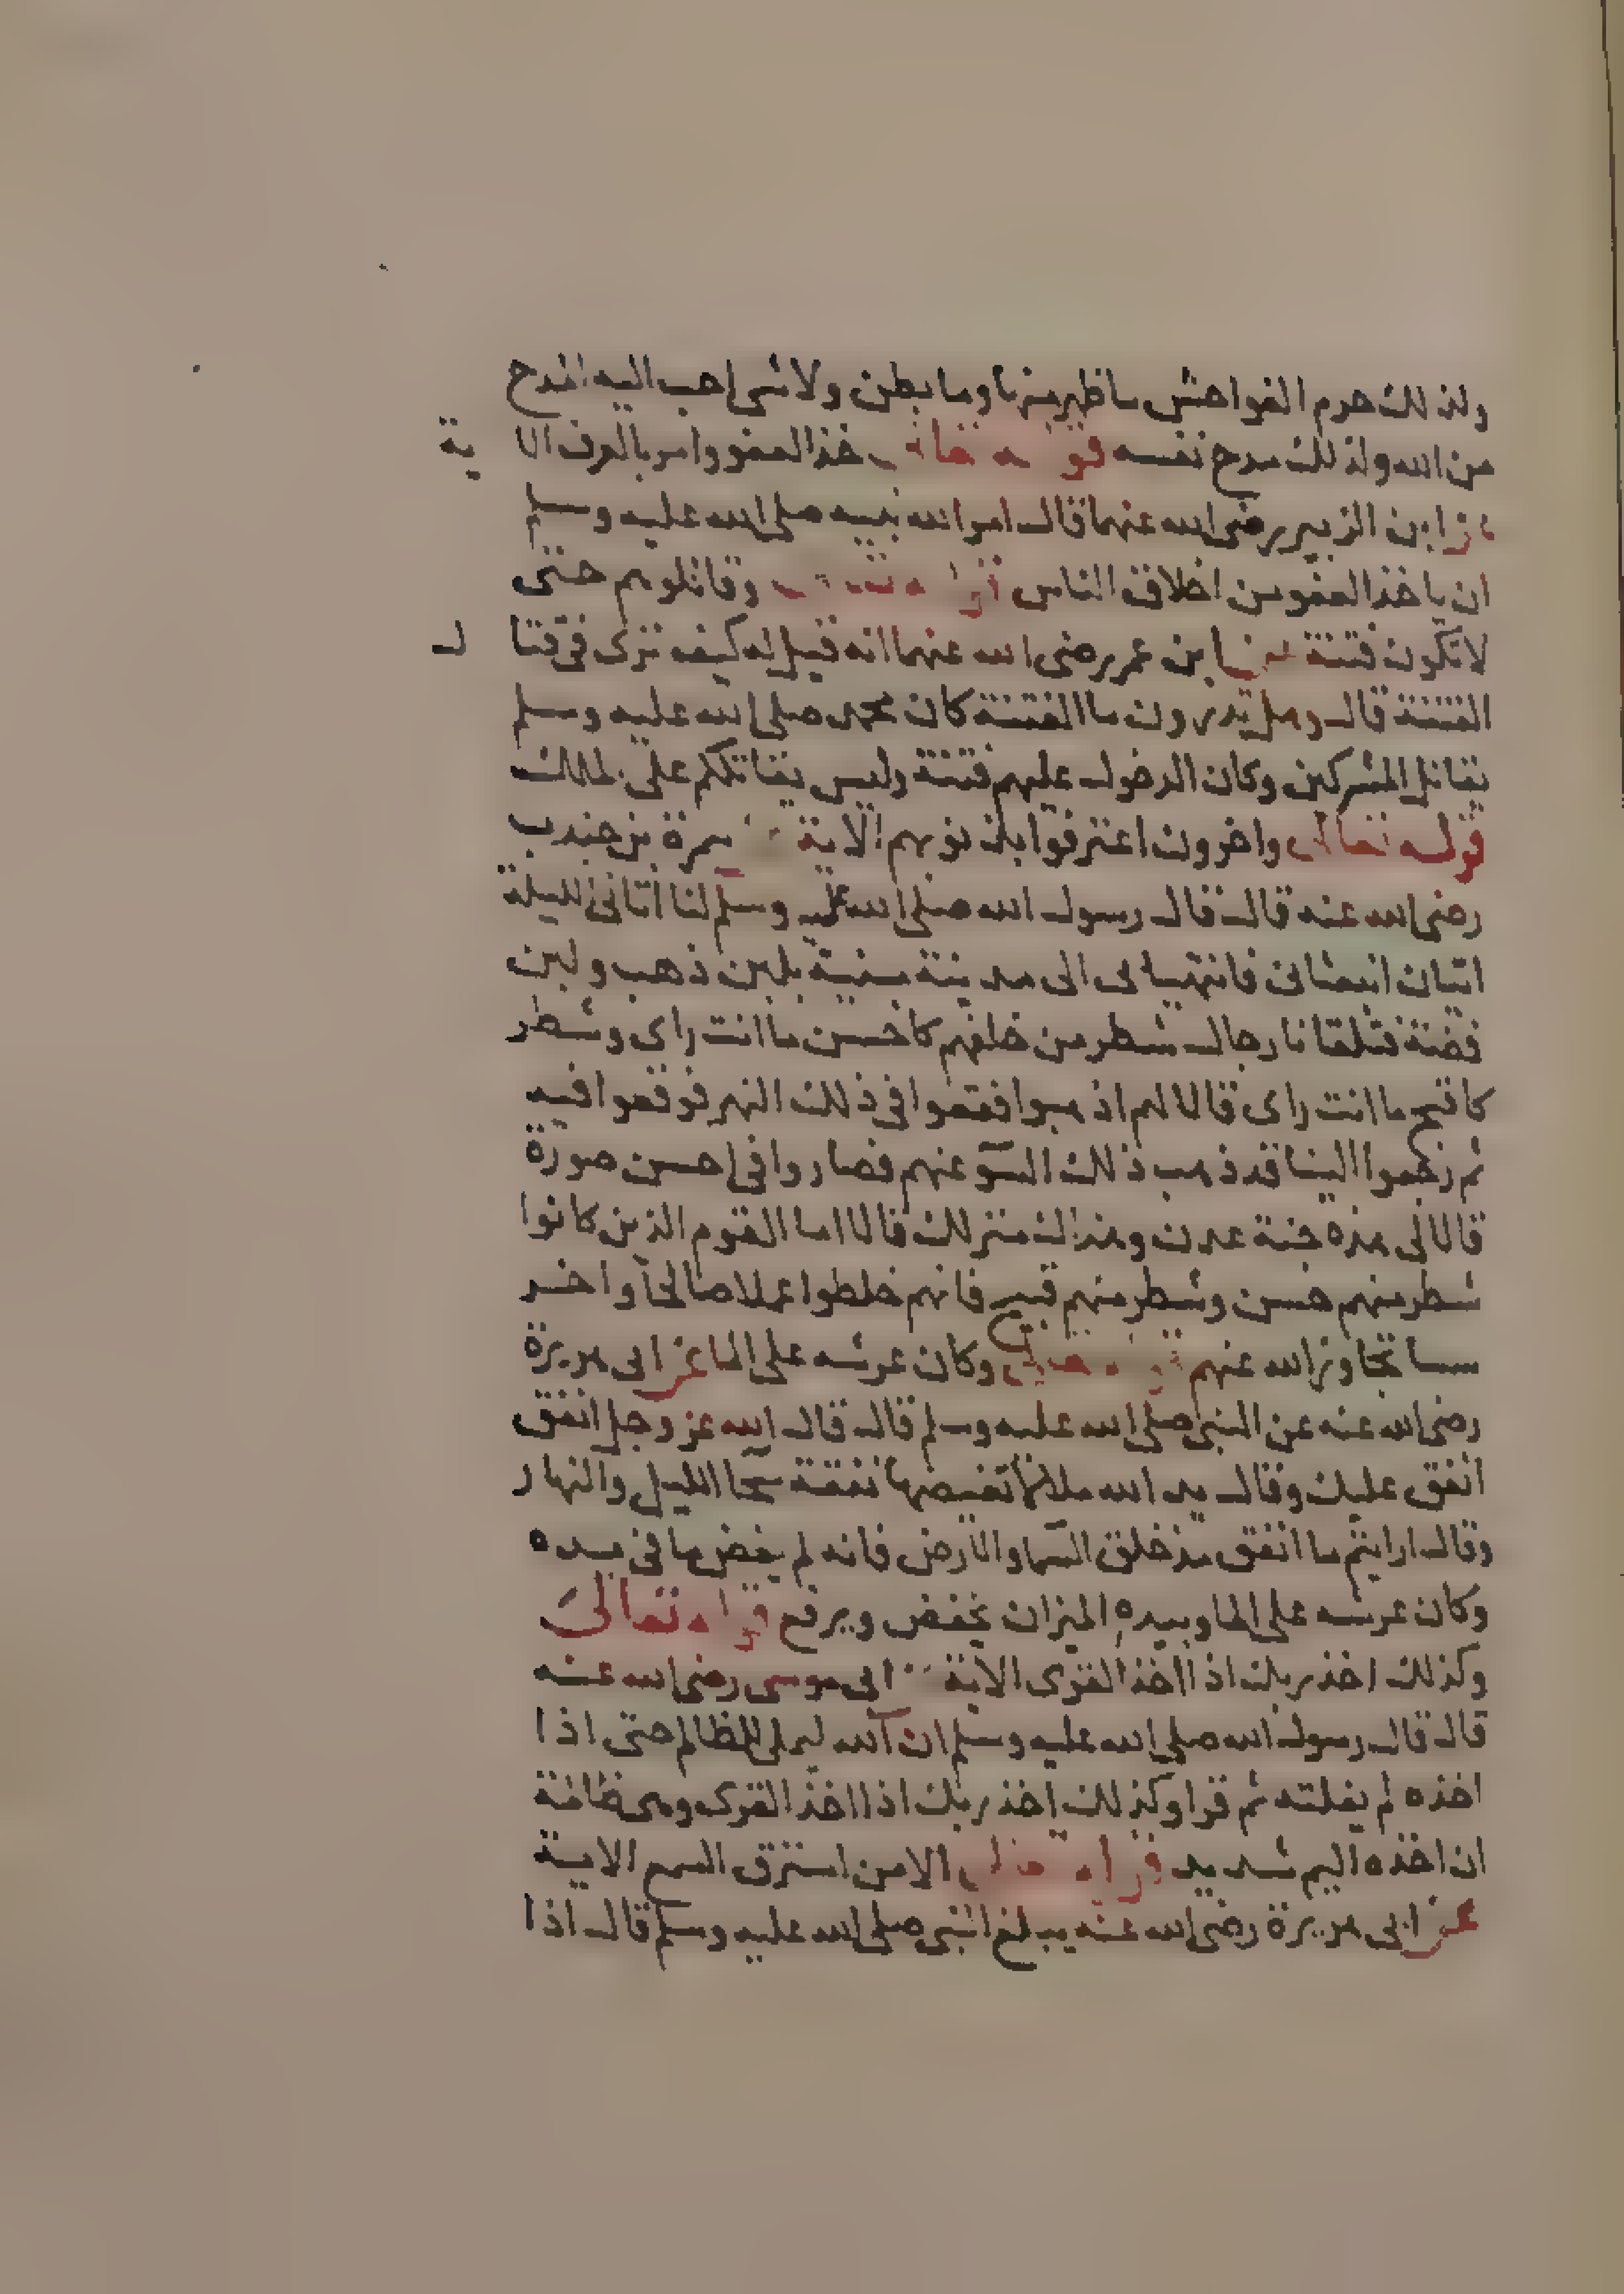 ولذلك حرم الفواحش ما ظهر منها وما بطن ولا شى احب اليه المدح
من الله ولذلك مدح نفسه قوله تعالى خذ العفو وامر بالعرف الاية
عن ابن الزبير رضى الله عنهما قال امر الله نبيه صلى الله عليه وسلم
ان ياخذ العفو من اخلاق الناس قوله تعالى وقاتلوهم حتى
لا تكون فتنة عن ابن عمر رضى الله عنهما انه قيل له كيف ترى فى قتال
الفتنة قال وهل تدرون ما الفتنة كان محمد صلى الله عليه وسلم
يقاتل المشركين وكان الدخول عليهم فتنة وليس يقاتلكم على الملك
قوله تعالى واخرون اعترفوا بذنوبهم الاية عن سمرة بن جندب
رضى الله عنه قال قال رسول الله صلى الله عليه وسلم لنا اتانى الليلة
اتيان ابتعثانى فانتهيا بى الى مدينة مبنية بلبن ذهب ولبن
فضة فتلقانا رجال شطر من خلقهم كاحسن ما انت راى وشطر
كاقبح ما انت راى قالا لهم اذهبوا فقعوا فى ذلك النهر فوقعوا فيه
ثم رجعوا الينا قد ذهب ذلك السو عنهم فصاروا فى احسن صورة
قالا لى هذه جنة عدن وهذاك منزلك قالا اما القوم الذين كانوا
شطر منهم حسن وشطر منهم قبيح فانهم خلطوا عملا صالحا واخر
سيا تجاوز الله عنهم قوله تعالى وكان عرشه على الما عن ابى هريرة
رضى الله عنه عن النبى صلى الله عليه وسلم قال قال الله عز وجل انفق
انفق عليك وقال يد الله ملا لا تغيضها نفقة سحا الليل والنهار
وقال ارايتم ما انفق مذ خلق السما والارض فانه لم يغض ما فى يده
وكان عرشه على الما وبيده الميزان يخفض ويرفع قوله تعالى
وكذلك اخذ ربك اذا اخذ القرى الاية عن ابى موسى رضى الله عنه
قال قال رسول الله صلى الله عليه وسلم ان الله ليملى للظالم حتى اذا
اخذه لم يفلته ثم قرا وكذلك اخذ ربك اذا اخذ القرى وهى ظالمة
ان اخذه اليم شديد قوله تعالى الا من استرق السمع الاية
عن ابى هريرة رضى الله عنه يبلغ النبى صلى الله عليه وسلم قال اذا